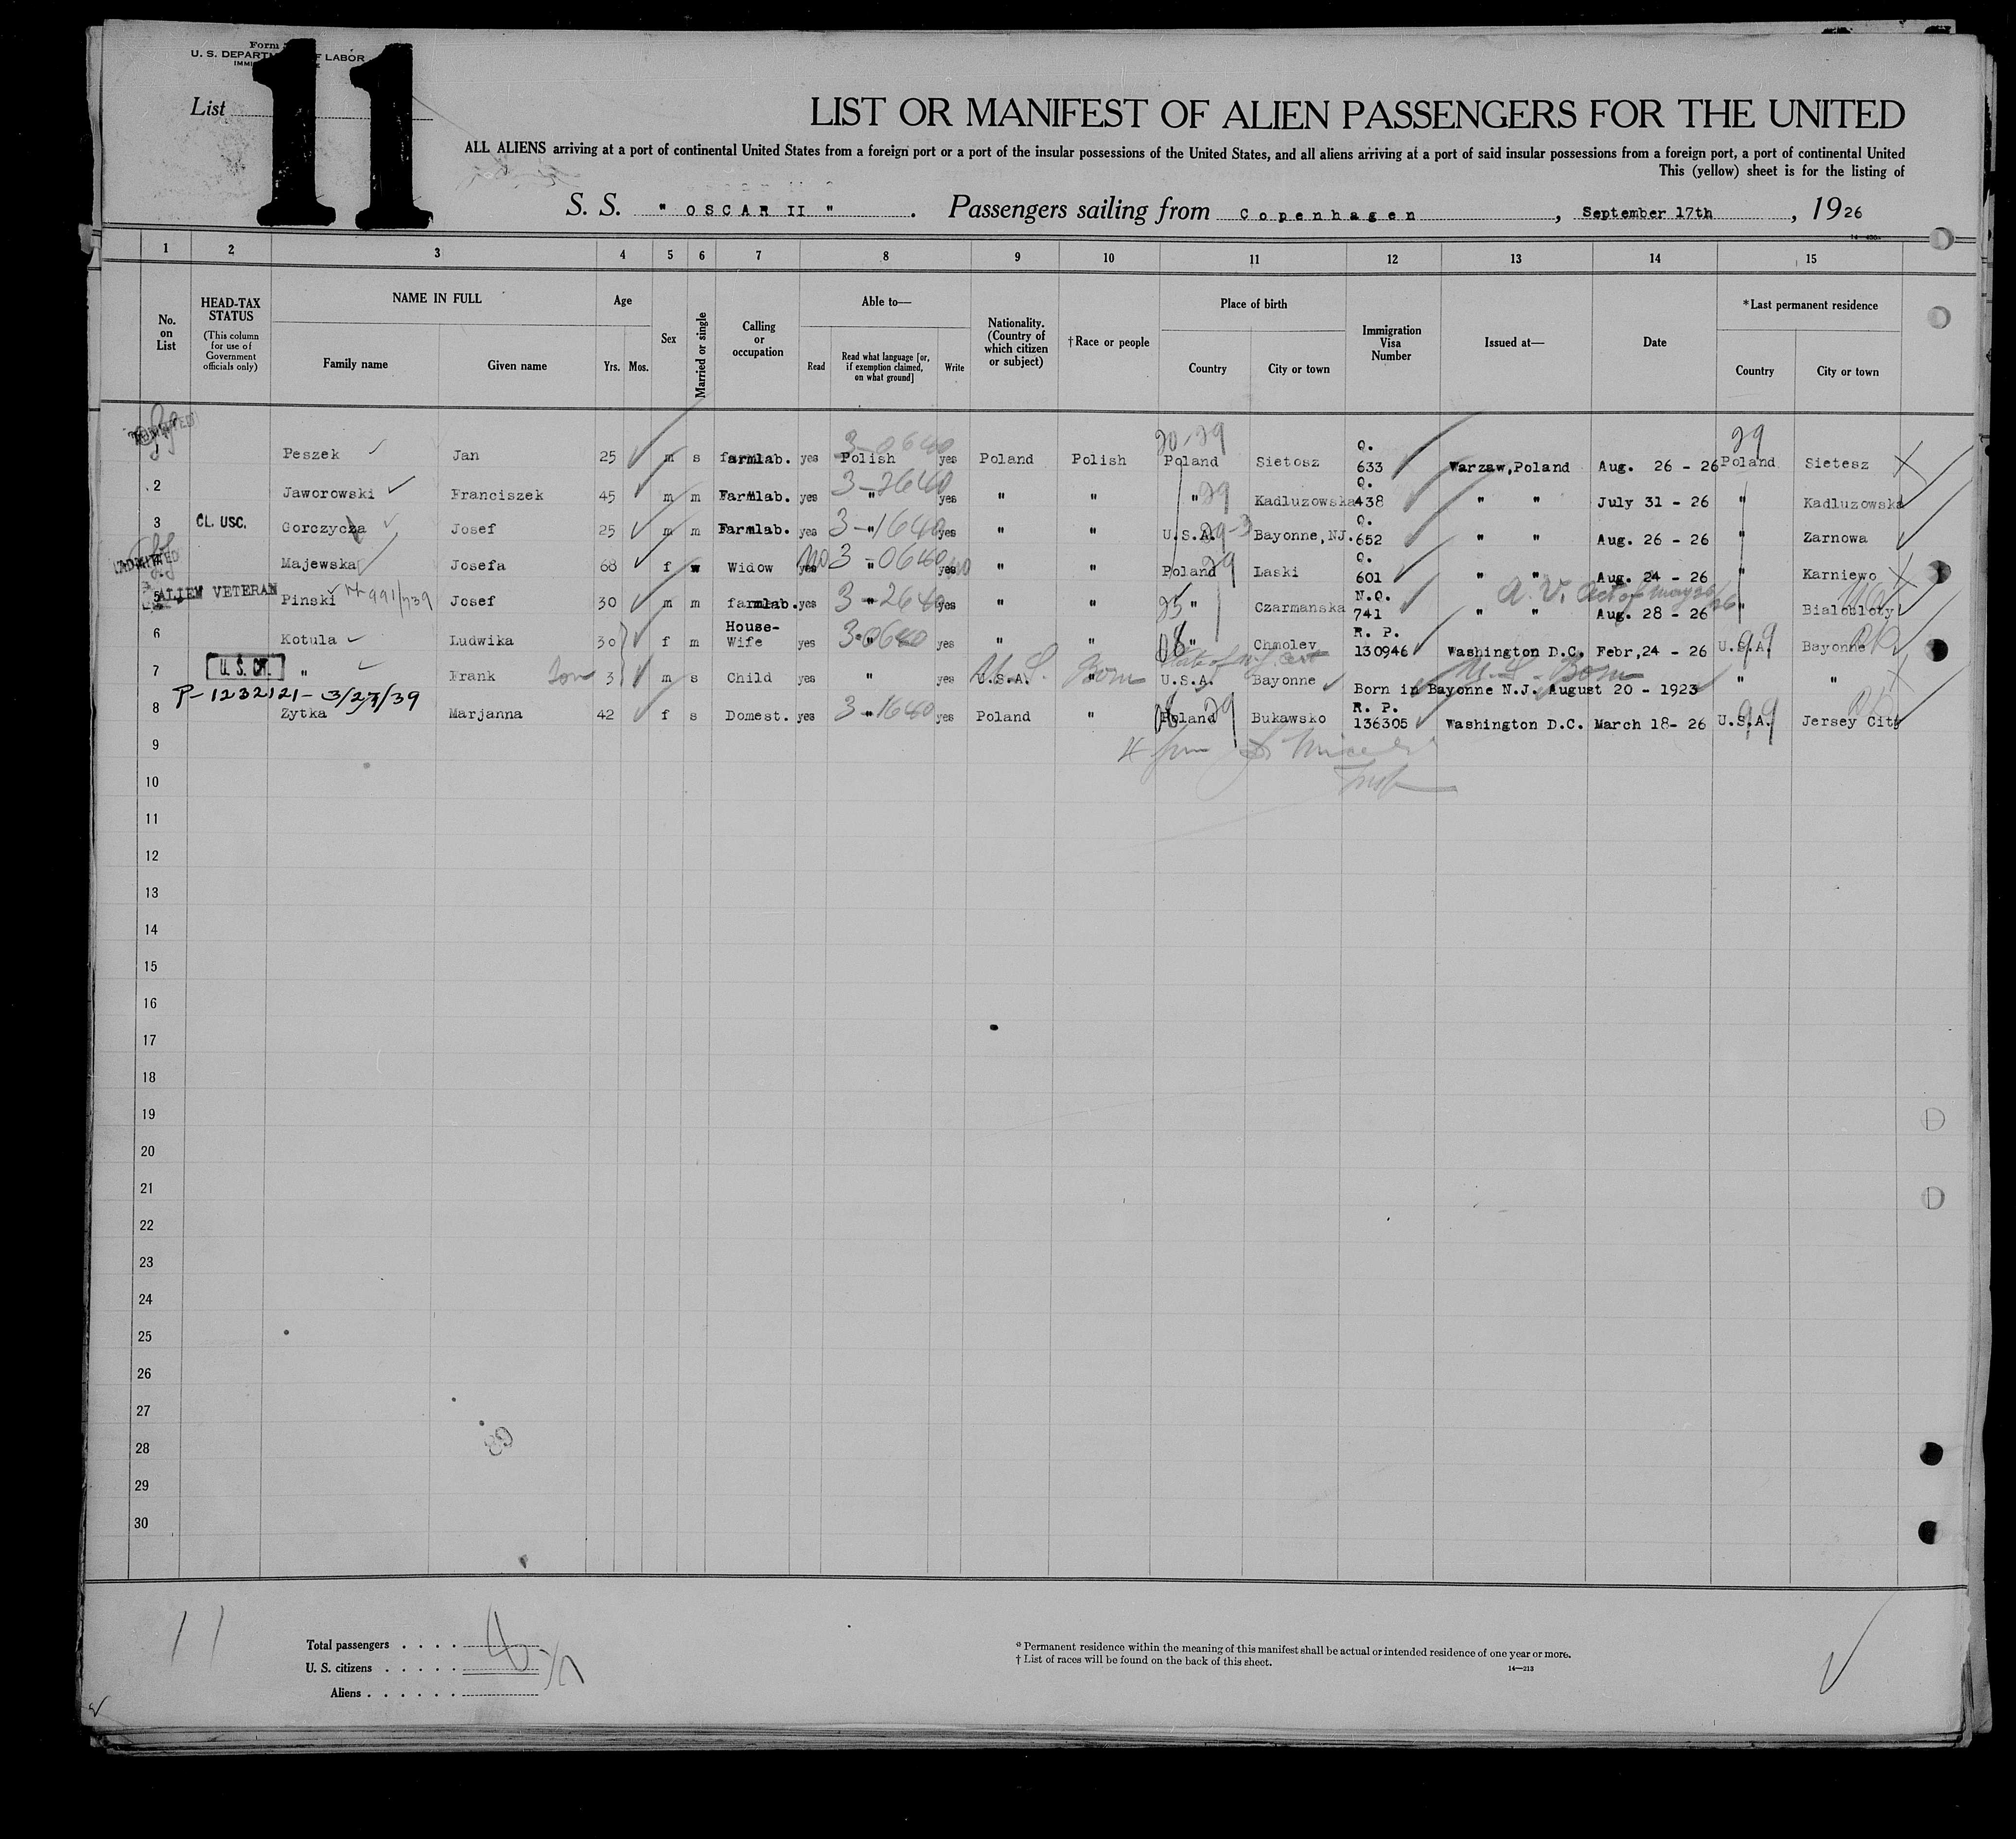 Form
U. S. DEPARTMENT OF LABOR
List
11
LIST OR MANIFEST OF ALIEN PASSENGERS FOR THE UNITED
ALL ALIENS arriving at a port of continental United States from a foreign port or a port of the insular possessions of the United States, and all aliens arriving at a port of said insular possessions from a foreign port, a port of continental United
This (yellow) sheet is for the listing of
S. S. " OSCAR II " . Passengers sailing from Copenhagen , September 17th , 1926
1 2 3 4 5 6 7 8 9 10 11 12 13 14 15
No. on List
HEAD-TAX STATUS (This column for use of Government officials only)
NAME IN FULL Family name Given name
Age Yrs. Mos.
Sex
Married or single
Calling or occupation
Able to— Read Read what language [or, if exemption claimed, on what ground] Write
Nationality. (Country of which citizen or subject)
†Race or people
Place of birth Country City or town
Immigration Visa Number
Issued at—
Date
*Last permanent residence Country City or town
ADMITTED 3-0640 20-29 29
1 Peszek Jan 25 m s farmlab. yes Polish yes Poland Polish Poland Sietosz Q. 633 Warzaw,Poland Aug. 26 - 26 Poland Sietesz
2 Jaworowski Franciszek 45 m m Farmlab. yes 3-2640 " yes " " " 29 Kadluzowska Q. 438 " " July 31 - 26 " Kadluzowska
3 CL. USC. Gorczycza Josef 25 m m Farmlab. yes 3-1640 " yes " " U.S.A. 29-3 Bayonne,NJ. Q. 652 " " Aug. 26 - 26 " Zarnowa
ADMITTED Majewska Josefa 68 f w Widow yes no 3-0640 " yes no " " Poland 29 Laski Q. 601 " " Aug. 24 - 26 " Karniewo
5 ALIEN VETERAN Pinski 991/739 Josef 30 m m farmlab. yes 3-2640 " yes " " 25 " Czarmanska N.Q. 741 " " A. V. Act of May 26/26 Aug. 28 - 26 " Bialobloty
6 Kotula Ludwika 30 f m House-Wife yes 3-0640 " yes " " 08 " Chmolev R. P. 130946 Washington D.C. Febr,24 - 26 U.S.A. 99 Bayonne
7 U. S. CIT. " Frank Son 3 m s Child yes " yes U.S.A. " U.S. Born U.S.A. Bayonne Born in Bayonne N.J. August 20 - 1923 U.S. Born " "
P-1232121-3/27/39
8 Zytka Marjanna 42 f s Domest. yes 3-1640 " yes Poland " Poland 08 29 Bukawsko R. P. 136305 Washington D.C. March 18- 26 U.S.A. 99 Jersey City
9
10
11
12
13
14
15
16
17
18
19
20
21
22
23
24
25
26
27
28
29
30
11
Total passengers . . . .
U. S. citizens . . . . .
Aliens . . . . . .
* Permanent residence within the meaning of this manifest shall be actual or intended residence of one year or more.
† List of races will be found on the back of this sheet.
14—213